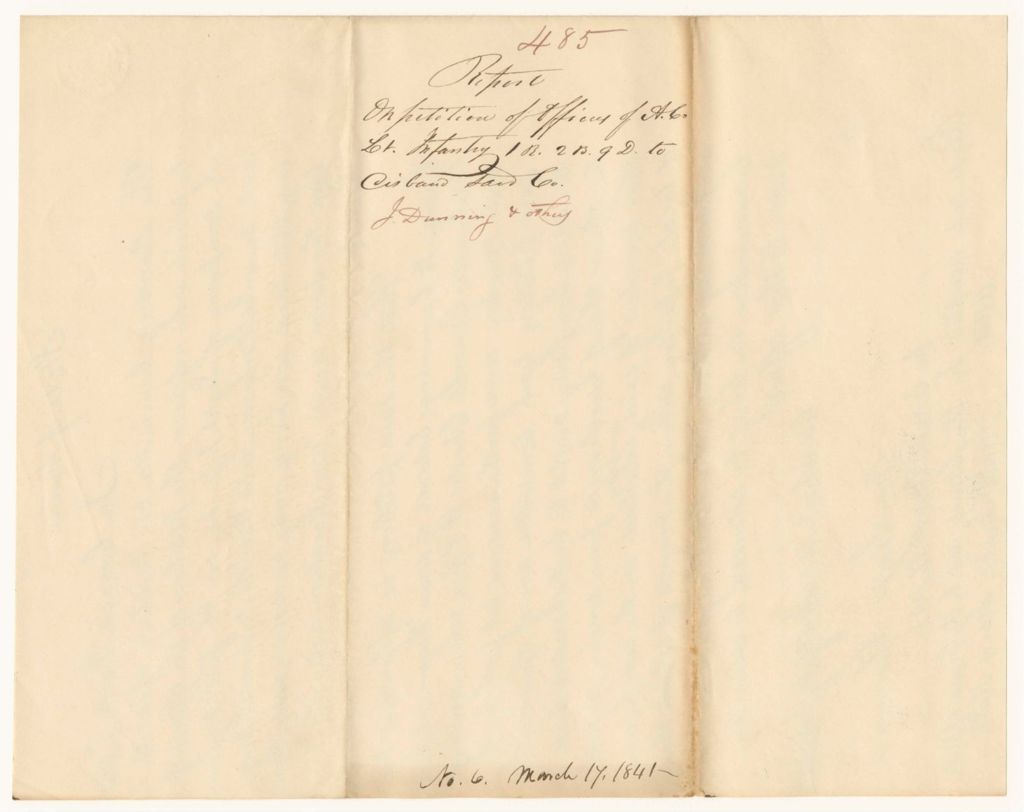 485
Report
On petition of Officers of A. Co
Lt. Infantry 1 R. 2 B. 9 D. to
Disband said Co.
J. Dunning & others
No. 6. March 17, 1841